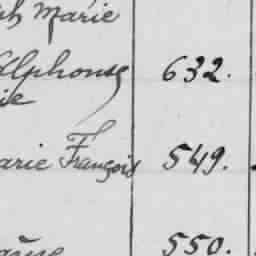 ph Marie
Alphonse 632.
ie
arie François 549.
550.